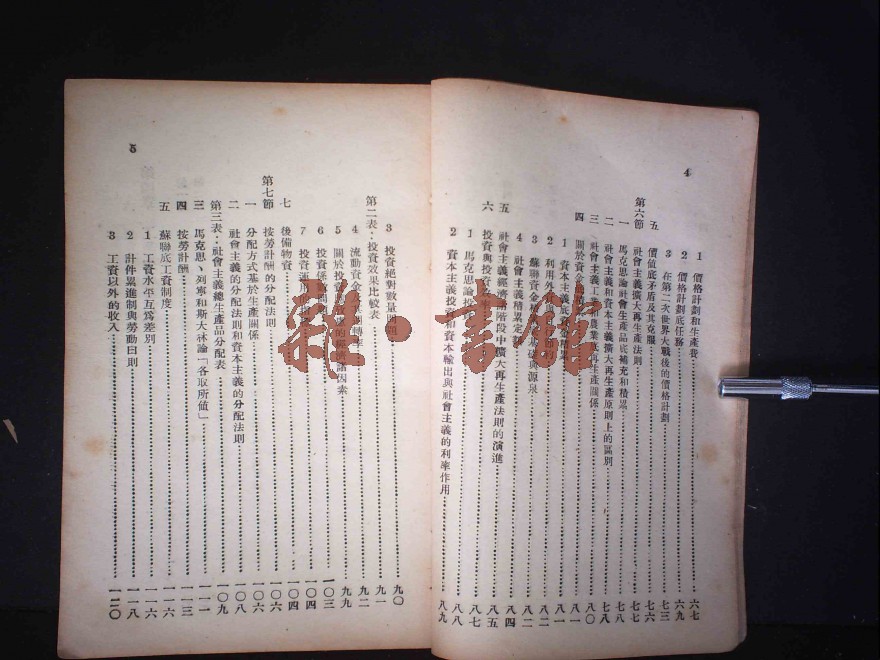 4
1 價格計劃和生產費 六七
2 價格計劃底任務 六九
3 在第二次世界大戰後的價格計劃 七三
五 價值底矛盾及其克服 七六
第六節 社會主義擴大再生產法則 七七
一 馬克思論社會生產品底補充和積累 七七
二 社會主義和資本主義擴大再生產原則上的區別 七八
三 社會主義工 農業 再生產關係 八〇
四 關於資金 八一
1 資本主義底資 積累 八一
2 利用外 八二
3 蘇聯資金積 與源泉 八二
4 社會主義積累定 八四
五 社會主義經濟 階段中擴大再生產法則的演進 八五
六 投資與投資 八七
1 馬克思論投 八八
2 資本主義投資和資本輸出與社會主義的利率作用 八九
5
3 投資絕對數量問題 九〇
第二表:投資效果比較表 九一
4 流動資金及其周轉率 九二
5 關於投 的經濟諸因素 九九
6 投資係數 一〇三
7 投資運用 一〇四
七 後備物資 一〇四
第七節 按勞計酬的分配法則 一〇六
一 分配方式基於生產關係 一〇六
二 社會主義的分配法則和資本主義的分配法則 一〇八
第三表:社會主義總生產品分配表 一〇九
三 馬克思、列寧和斯大林論「各取所值」 一一一
四 按勞計酬 一一三
五 蘇聯底工資制度 一一六
1 工資水平互爲差別 一一六
2 計件累進制與勞動日則 一一八
3 工資以外的收入 一二〇
雜·書館